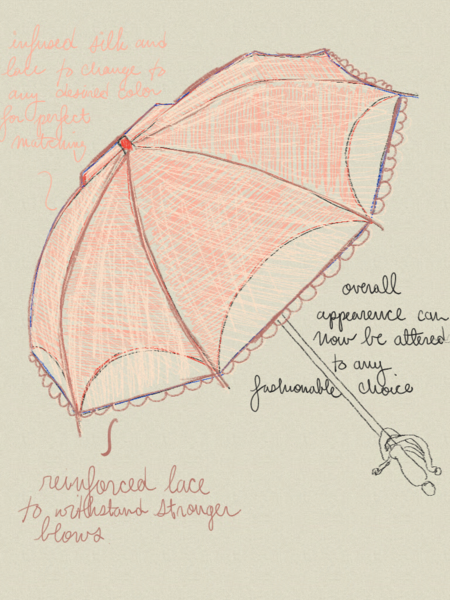 infused silk and
lace to change to
any desired color
for perfect
matching
overall
appearence can
now be altered
to any
fashionable choice
reinforced lace
to withstand stronger
blows